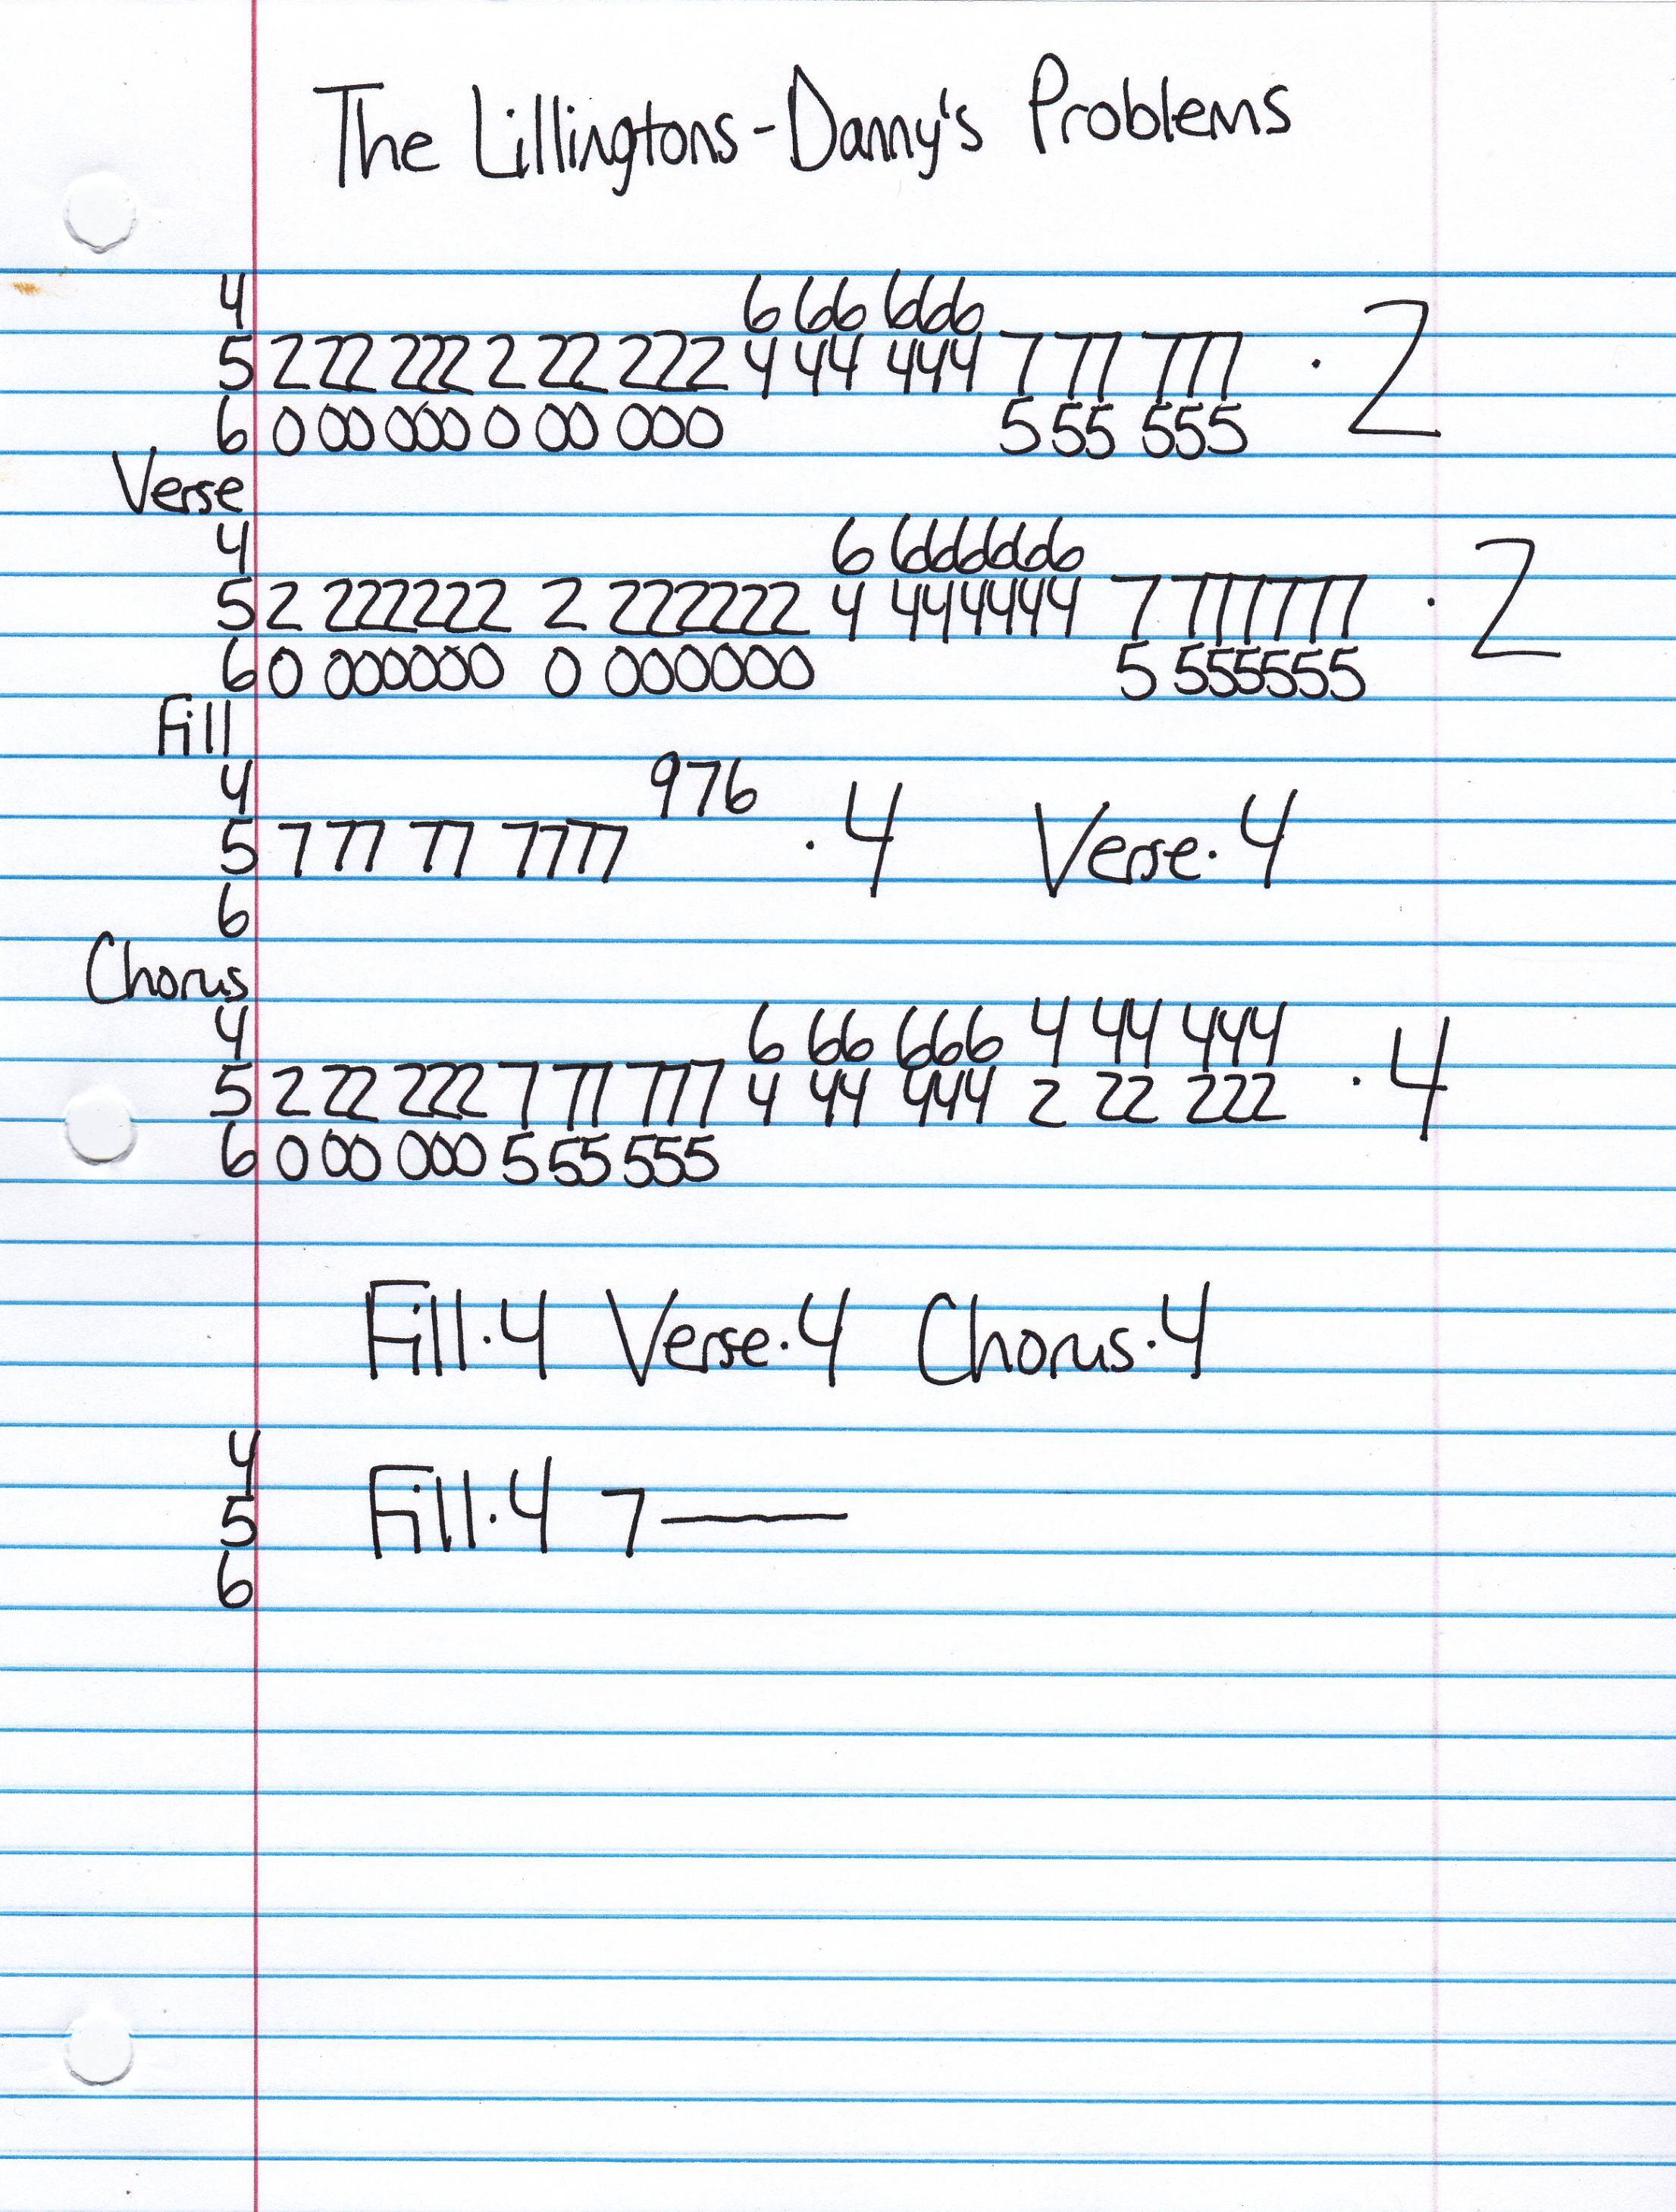 The Lillingtons - Danny's Problems
4 6 66 666
5 2 22 222 2 22 222 4 44 444 7 77 777 · 2
6 0 00 000 0 00 000 5 55 555
Verse
4 6 666666
5 2 222222 2 222222 4 444444 7 777777 · 2
6 0 000000 0 000000 5 555555
Fill
4 976
5 7 77 77 7777 · 4 Verse · 4
6
Chorus
4 6 66 666 4 44 444
5 2 22 222 7 77 777 4 44 444 2 22 222 · 4
6 0 00 000 5 55 555
Fill · 4 Verse · 4 Chorus · 4
4
5 Fill · 4 7 ——
6